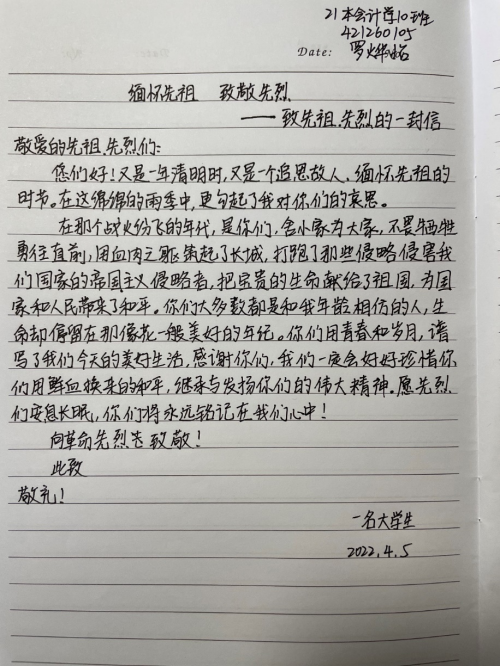 21本会计学10班
421260105
Date: 罗烨
缅怀先祖 致敬先烈
——致先祖、先烈的一封信
敬爱的先祖、先烈们:
您们好!又是一年清明时,又是一个追思故人、缅怀先祖的
时节。在这绵绵的雨季中,更勾起了我对你们的哀思。
在那个战火纷飞的年代,是你们,舍小家为大家,不畏牺牲
勇往直前,用血肉之躯筑起了长城,打跑了那些侵略侵害我
们国家的帝国主义侵略者,把宝贵的生命献给了祖国,为国
家和人民带来了和平。你们大多数都是和我年龄相仿的人,生
命却停留在那像花一般美好的年纪。你们用青春和岁月,谱
写了我们今天的美好生活,感谢你们,我们一定会好好珍惜你
们用鲜血换来的和平,继承与发扬你们的伟大精神。愿先烈
们安息长眠,你们将永远铭记在我们心中!
向革命先烈志致敬!
此致
敬礼!
一名大学生
2022.4.5